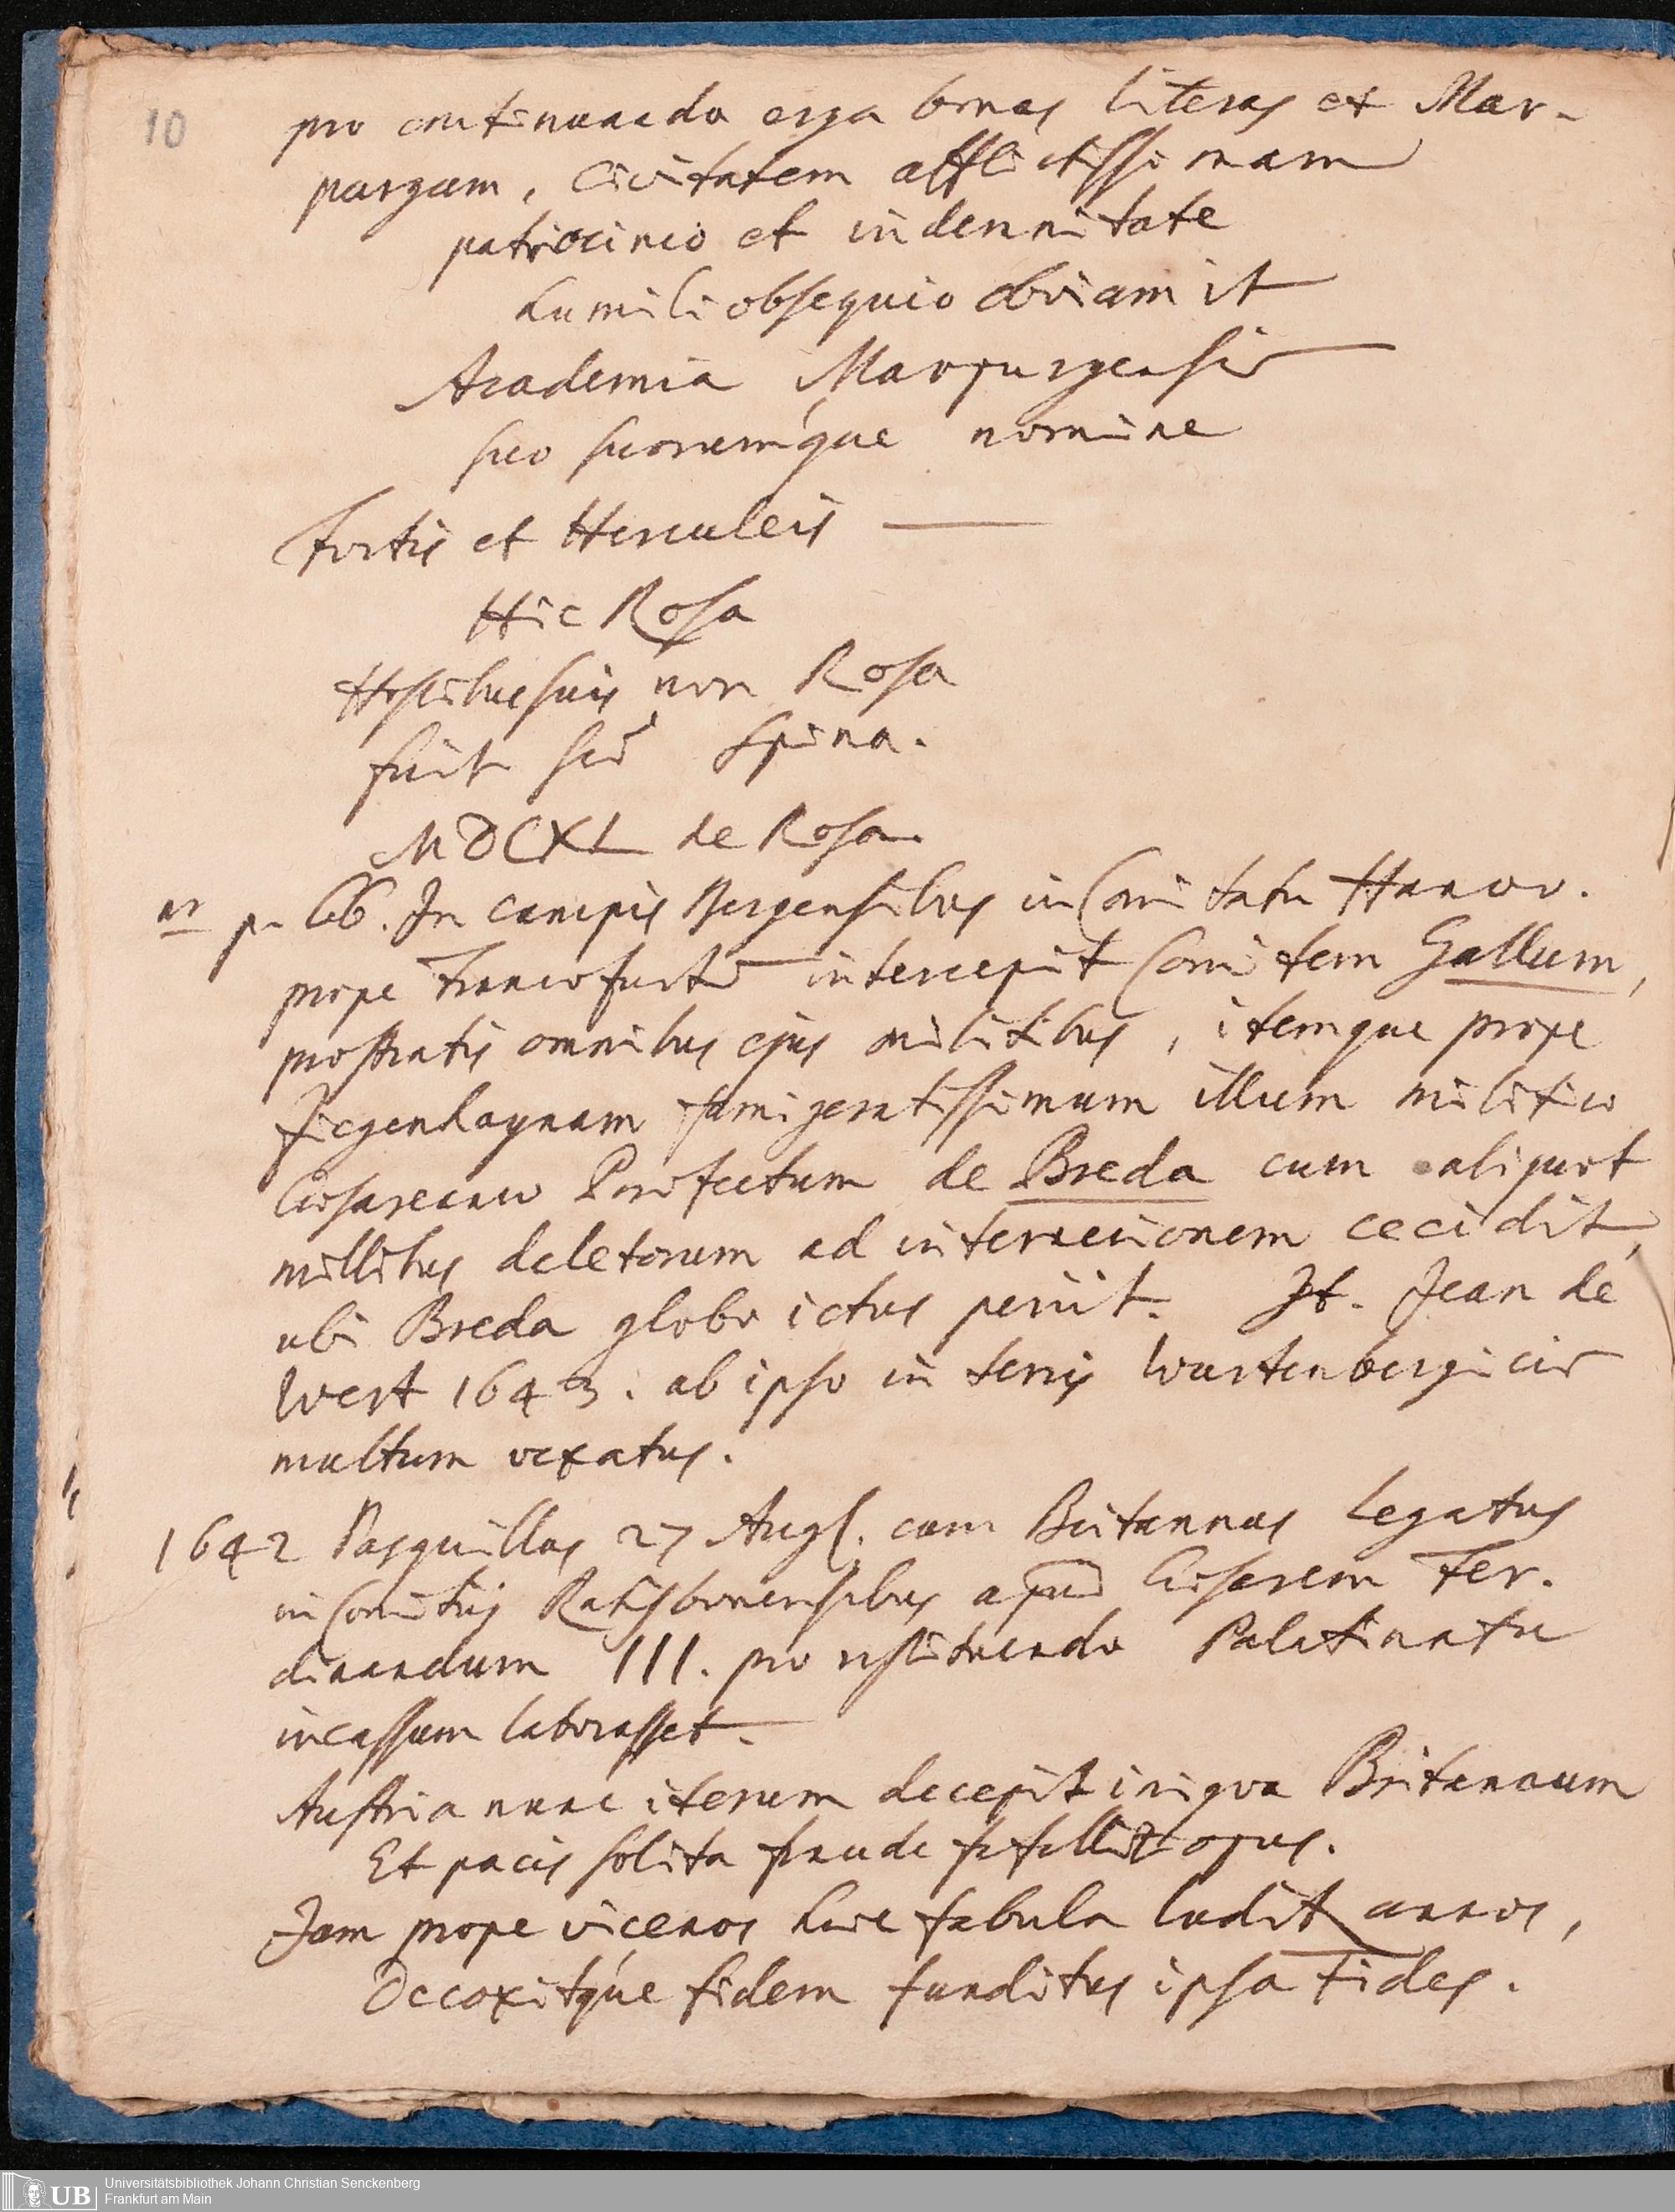 10
pro continuando erga bonas literas et Mar-
purgum, civitatem afflictissimam
patrocinio et indennitate
humili obsequio obviam it
Academia Marpurgensis
suo suorumque nomine
Fortis et Herculeis —
Hic Rosa
Hostibus suis non Rosa
fuit sed Spina.
MDCXL de Rosa.
p. 66. In campis Bergensibus in Comitatu Hanov.
prope Francofurt intercepit Comitem Gallum,
prostratis omnibus ejus militibus, itemque prope
Ziegenhaynam famigeratissimum illum militiæ
Cæsareanæ Præfectum de Breda cum aliquot
millibus deletorum ad internecionem cecidit,
ubi Breda globo ictus periit. It. Jean de
Wert 1643. ab ipso in terris Wurtenbergicis
multum vexatus.
1642 Pasquillus 27 Aug. cum Britannus Legatus
in Comitiis Ratisbonensibus apud Cæsarem Fer-
dinandum III. pro restituendo Palatinatu
incassum laborasset.
Austria nunc iterum decepit iniqua Britannum
Et pacis solita fraude fefellit opus.
Jam prope vicenos hæc fabula ludit annos,
Decoxitque fidem funditus ipsa Fides.
Universitätsbibliothek Johann Christian Senckenberg
Frankfurt am Main
UB